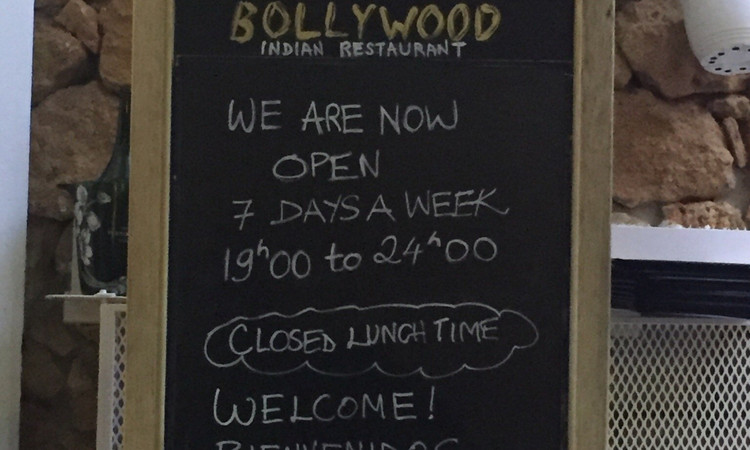 BOLLYWOOD
INDIAN RESTAURANT
WE ARE NOW
OPEN
7 DAYS A WEEK
19h00 to 24h00
CLOSED LUNCH TIME
WELCOME!
BIENVENIDOS